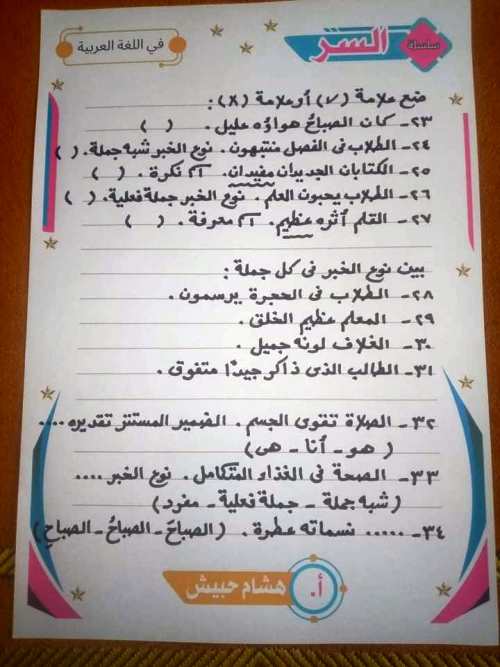 سلسلة السر
في اللغة العربية
ضع علامة (√) أو علامة (X) :
٢٣- كان الصباحُ هواؤه عليل . ( )
٢٤- الطلاب فى الفصل منتبهون . نوع الخبر شبه جملة . ( )
٢٥- الكتابان الجديدان مفيدان . نكرة . ( )
٢٦- الطلاب يحبون العلم . نوع الخبر جملة فعلية . ( )
٢٧- القلم أثره عظيم . معرفة . ( )
بين نوع الخبر فى كل جملة :
٢٨- الطلاب فى الحجرة يرسمون .
٢٩- المعلم عظيم الخلق .
٣٠- الغلاف لونه جميل .
٣١- الطالب الذى ذاكر جيدًا متفوق .
٣٢- الصلاة تقوى الجسم . الضمير المستتر تقديره ....
( هو - أنا - هى )
٣٣- الصحة فى الغذاء المتكامل . نوع الخبر ....
( شبه جملة - جملة فعلية - مفرد )
٣٤- ..... نسماته عطرة . ( الصباحَ - الصباحُ - الصباحِ )
أ. هشام حبيش